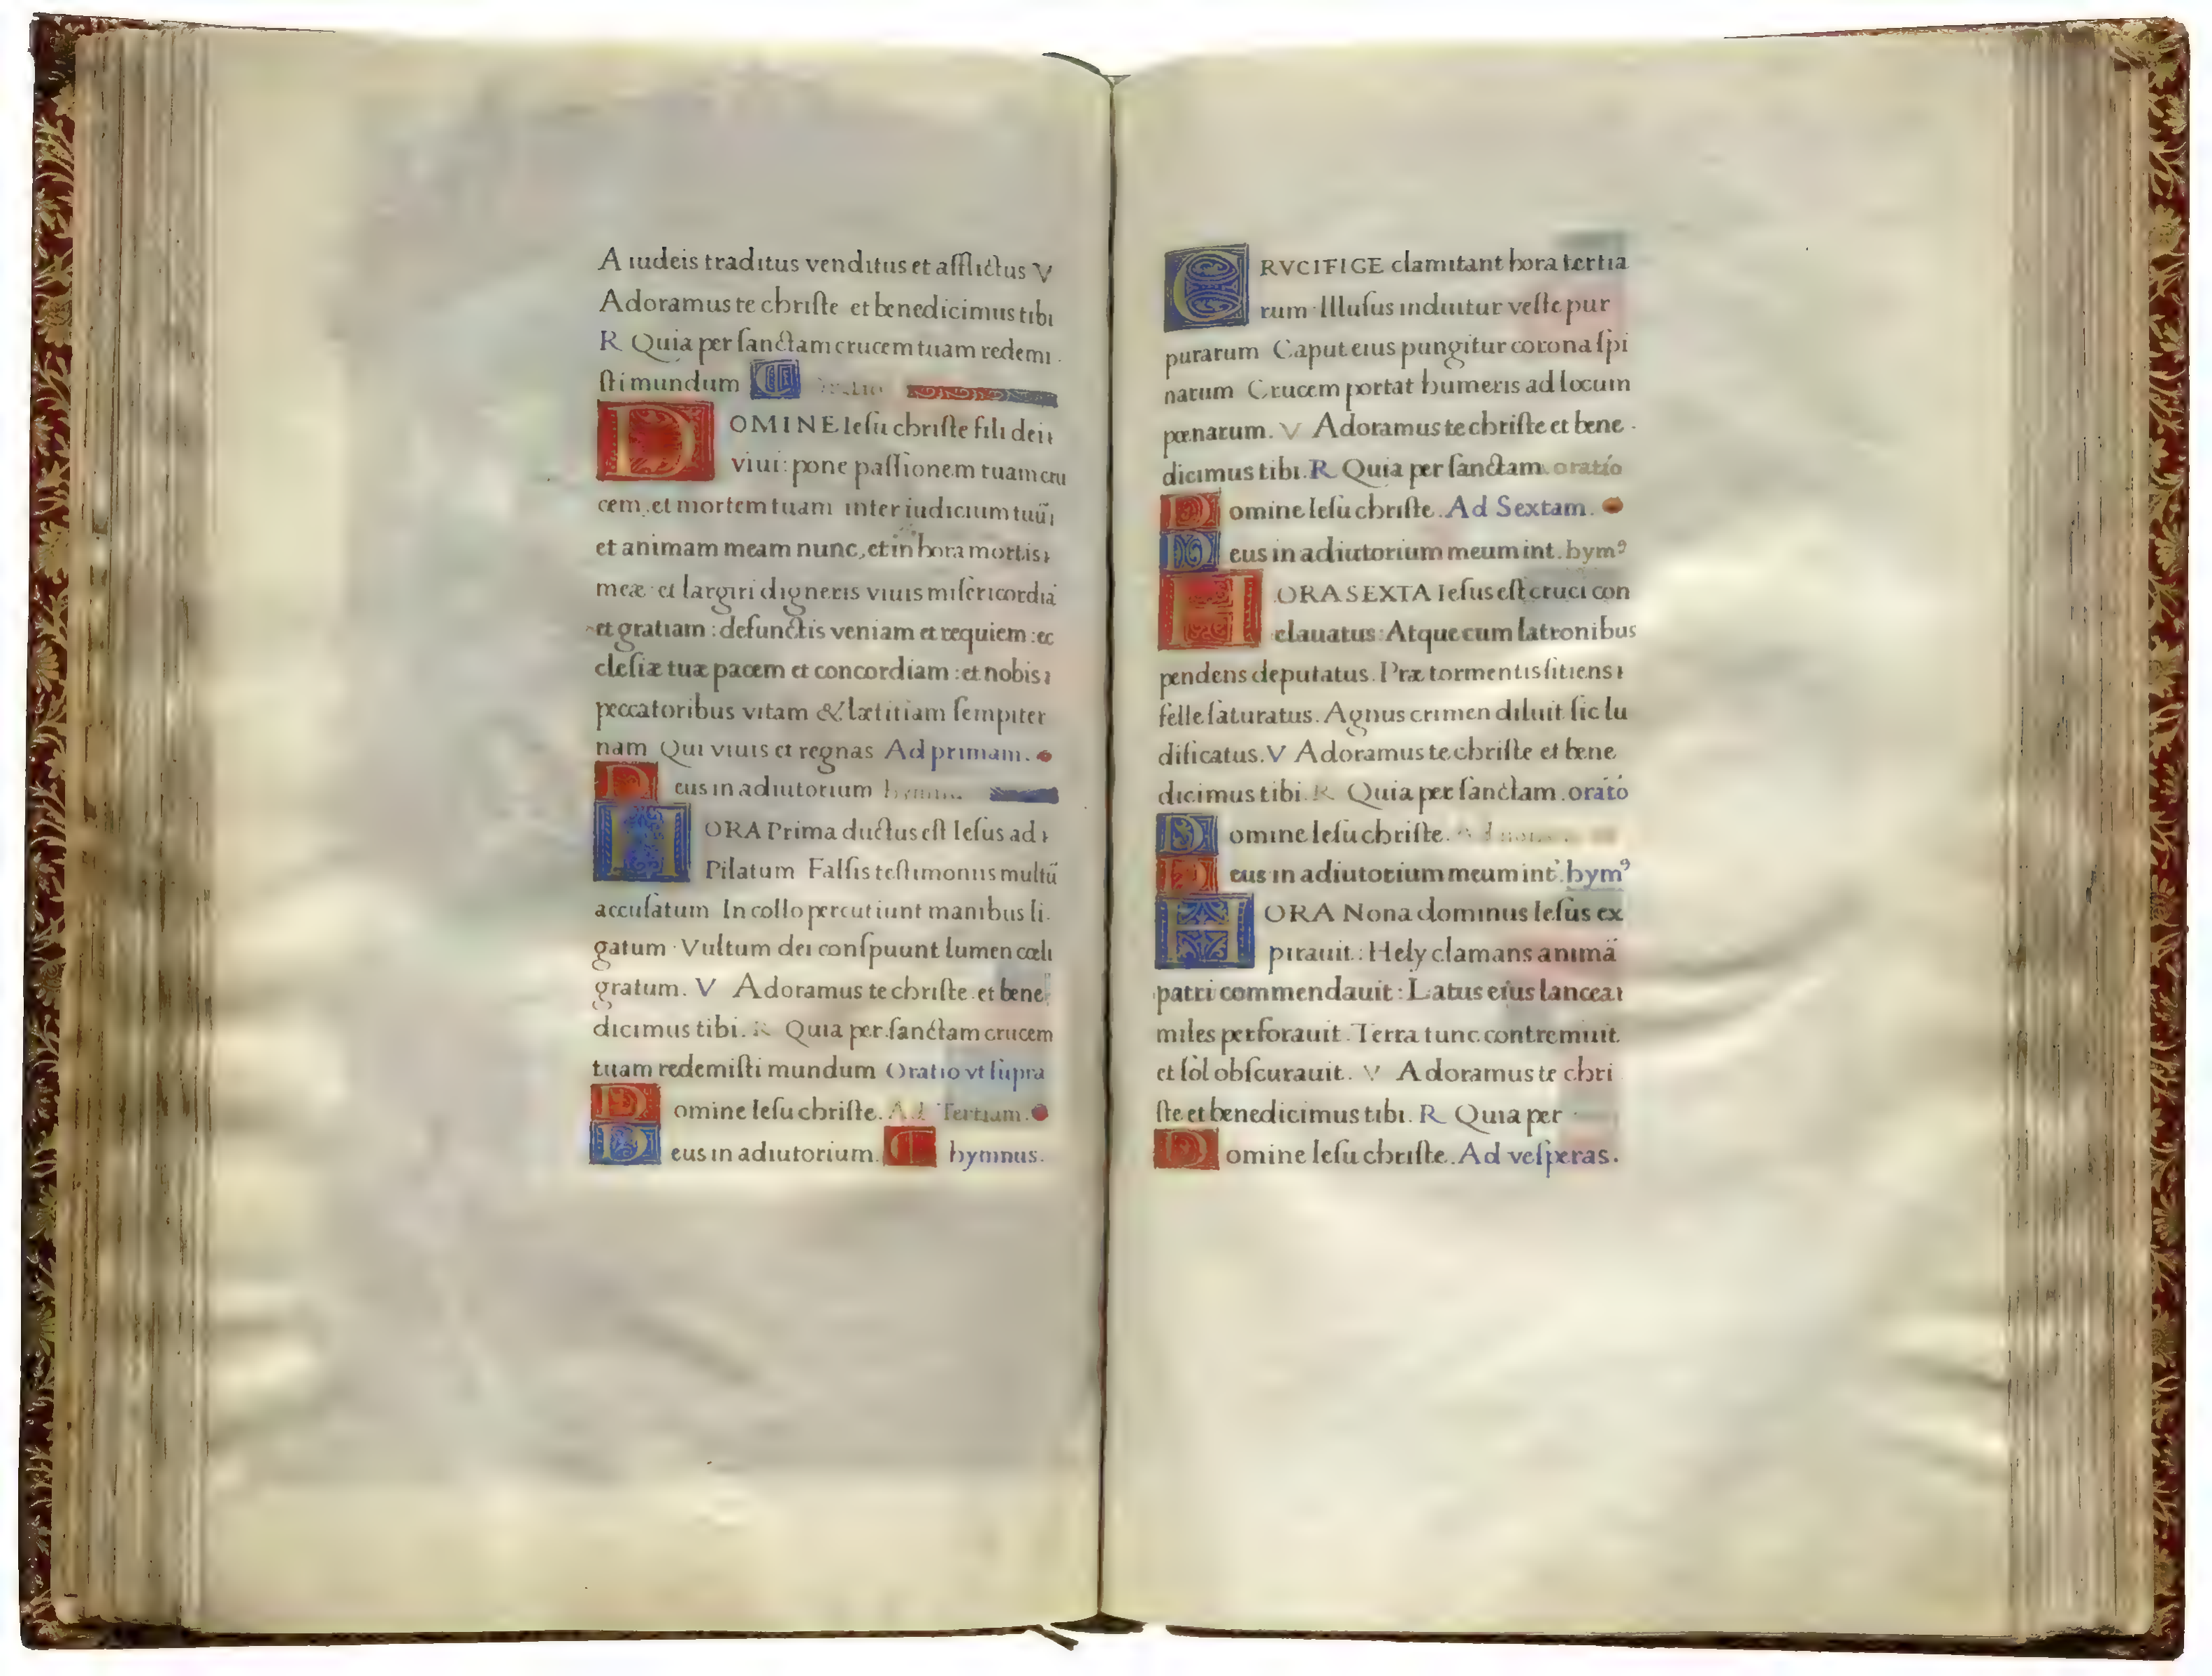 A iudeis traditus venditus et afflictus V
Adoramus te christe et benedicimus tibi
R Quia per sanctam crucem tuam redemi
sti mundum
DOMINE Iesu christe fili dei
viui: pone passionem tuam cru
cem et mortem tuam inter iudicium tuũ
et animam meam nunc, et in hora mortis
meæ et largiri digneris viuis misericordiã
et gratiam: defunctis veniam et requiem: ec
clesiæ tuæ pacem et concordiam: et nobis
peccatoribus vitam & lætitiam sempiter
nam Qui viuis et regnas Ad primam.
Deus in adiutorium
HORA Prima ductus est Iesus ad
Pilatum Falsis testimoniis multũ
accusatum In collo percutiunt manibus li
gatum Vultum dei conspuunt lumen cœli
gratum. V Adoramus te christe et bene
dicimus tibi. R Quia per sanctam crucem
tuam redemisti mundum Oratio vt supra
Domine Iesu christe. Ad Tertiam.
Deus in adiutorium. hymnus.
CRVCIFIGE clamitant hora tertia
rum Illusus induitur veste pur
purarum Caput eius pungitur corona spi
narum Crucem portat humeris ad locum
pœnarum. V Adoramus te christe et bene
dicimus tibi. R Quia per sanctam oratio
Domine Iesu christe. Ad Sextam.
Deus in adiutorium meum int. hymꝰ
HORA SEXTA Iesus est cruci con
clauatus: Atque cum latronibus
pendens deputatus. Præ tormentis sitiens
felle saturatus. Agnus crimen diluit sic lu
dificatus. V Adoramus te christe et bene
dicimus tibi. R Quia per sanctam. orató
Domine Iesu christe.
Deus in adiutorium meum int. hymꝰ
HORA Nona dominus Iesus ex
pirauit: Hely clamans animã
patri commendauit: Latus eius lancea
miles perforauit. Terra tunc contremuit
et sol obscurauit. V Adoramus te chri
ste et benedicimus tibi. R Quia per
Domine Iesu christe. Ad vesperas.